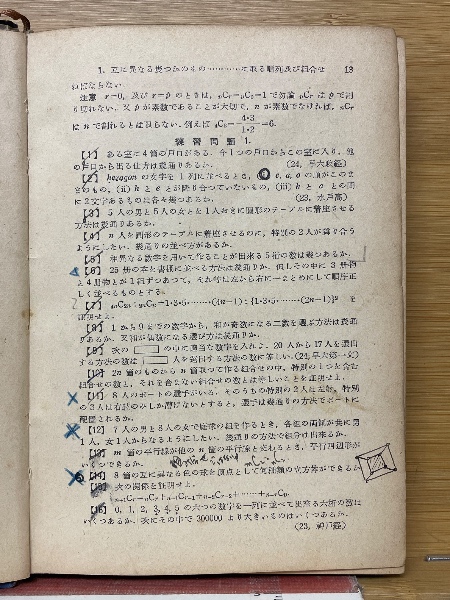 1. 互に異なる幾つかのもの………に取る順列及び組合せ 13
ねばならない.
注意 r=0, 及び r=p のときは, ₚC₀=ₚCₚ=1 で勿論 ₚCᵣ は p で割
り切れない. 又 p が素数であることが大切で, n が素数でなければ, ₙCᵣ
は n で割れるとは限らない. 例えば ₄C₂=4·3/1·2=6.
練習問題 1.
【1】 ある室に4個の戸口がある. 今1つの戸口からこの室に入り, 他
の戸口から出る仕方は幾通りあるか.
【2】 hexagon の文字を1列に並べるとき, e, a, o の順がこのま
きのもの, (ii) h と e とが隣り合っていないもの, (iii) h と o との間
に2文字あるものは各々幾つあるか. (23, 水戸高)
【3】 5人の男と5人の女とを1人おきに円形のテーブルに着席させる
方法は幾通りあるか.
【4】 n 人を円形のテーブルに着席させるのに, 特別の2人が隣り合う
ようにしたい. 幾通りの並べ方があるか.
【5】 相異なる数字を用いて作ることが出来る5桁の数は幾つあるか.
【6】 25冊の本を書棚に並べる方法は幾通りか. 但しその中に3冊物
と4冊物とが1組ずつあって, それ等は左から右に一まとめにして順序正
しく並べるものとする.
証明せよ.
【8】 1から9までの数字から, 和が奇数になる二数を選ぶ方法は幾通
りあるか. 又和が偶数になる選び方は幾通りか.
【9】 次の□の中に適当な数字を入れよ. 20人から17人を選出
する方法の数は□人を選出する方法の数に等しい.
【10】 2n 個のものから n 個取って作る組合せの中, 特別の1つを含む
組合せの数と, それを含まない組合せの数とは等しいことを証明せよ.
【11】 8人のボートの選手がいる. そのうちの特別の2人は左舷, 特別
の3人は右舷のみしか漕げないとすると, 選手は幾通りの方法でボートに
配置されるか.
【12】 7人の男と8人の女とで庭球の組を作るとき, 各組の両側が共に男
1人, 女1人からなるようにしたい. 幾通りの方法で組分け出来るか.
【13】 m 個の平行線が他の n 個の平行線と交わるとき, 平行四辺形が
いくつできるか.
【14】 8個の互に異なる色の球を頂点として何種類の立方体ができるか
【15】 次の関係を証明せよ.
【16】 0, 1, 2, 3, 4, 5 の六つの数字を一列に並べて出来る六桁の数は
いくつあるか. 次にその中で 300000 より大きいものはいくつあるか.